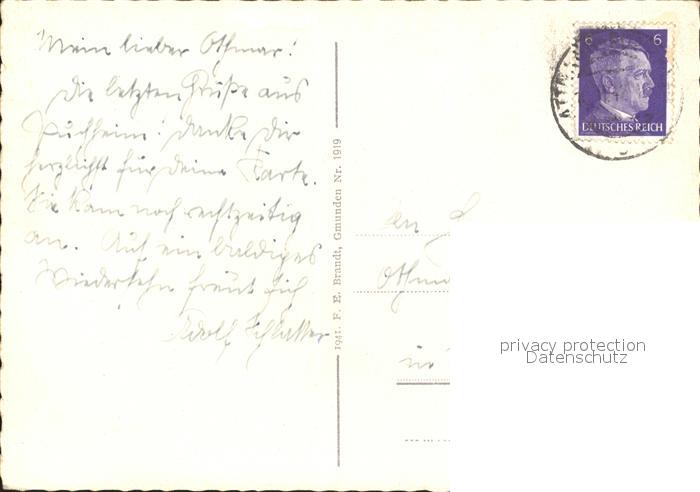 Mein lieber Othmar!
Die letzten Grüße aus
Puchheim! Danke Dir
herzlichst für Deine Karte.
Sie kam noch rechtzeitig
an. Auf ein baldiges
Wiedersehn freut sich
Adolf
1941. F. E. Brandt, Gmunden Nr. 1919
6 6
DEUTSCHES REICH
ATTN
An
Othm
in
privacy protection
Datenschutz